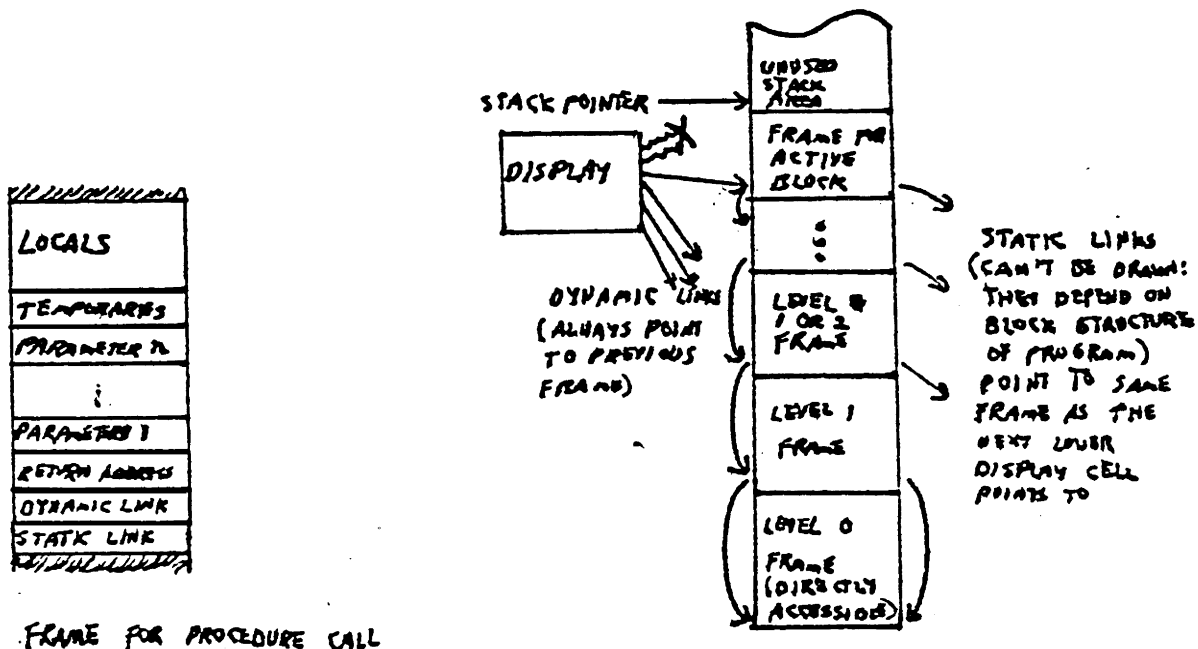 LOCALS
TEMPORARIES
PARAMETER n
PARAMETER 1
RETURN ADDRESS
DYNAMIC LINK
STATIC LINK
FRAME FOR PROCEDURE CALL
STACK POINTER
DISPLAY
DYNAMIC LINKS
(ALWAYS POINT
TO PREVIOUS
FRAME)
UNUSED
STACK
AREA
FRAME FOR
ACTIVE
BLOCK
LEVEL
1 OR 2
FRAME
LEVEL 1
FRAME
LEVEL 0
FRAME
(DIRECTLY
ACCESSIBLE)
STATIC LINKS
(CAN'T BE DRAWN:
THEY DEPEND ON
BLOCK STRUCTURE
OF PROGRAM)
POINT TO SAME
FRAME AS THE
NEXT LOWER
DISPLAY CELL
POINTS TO